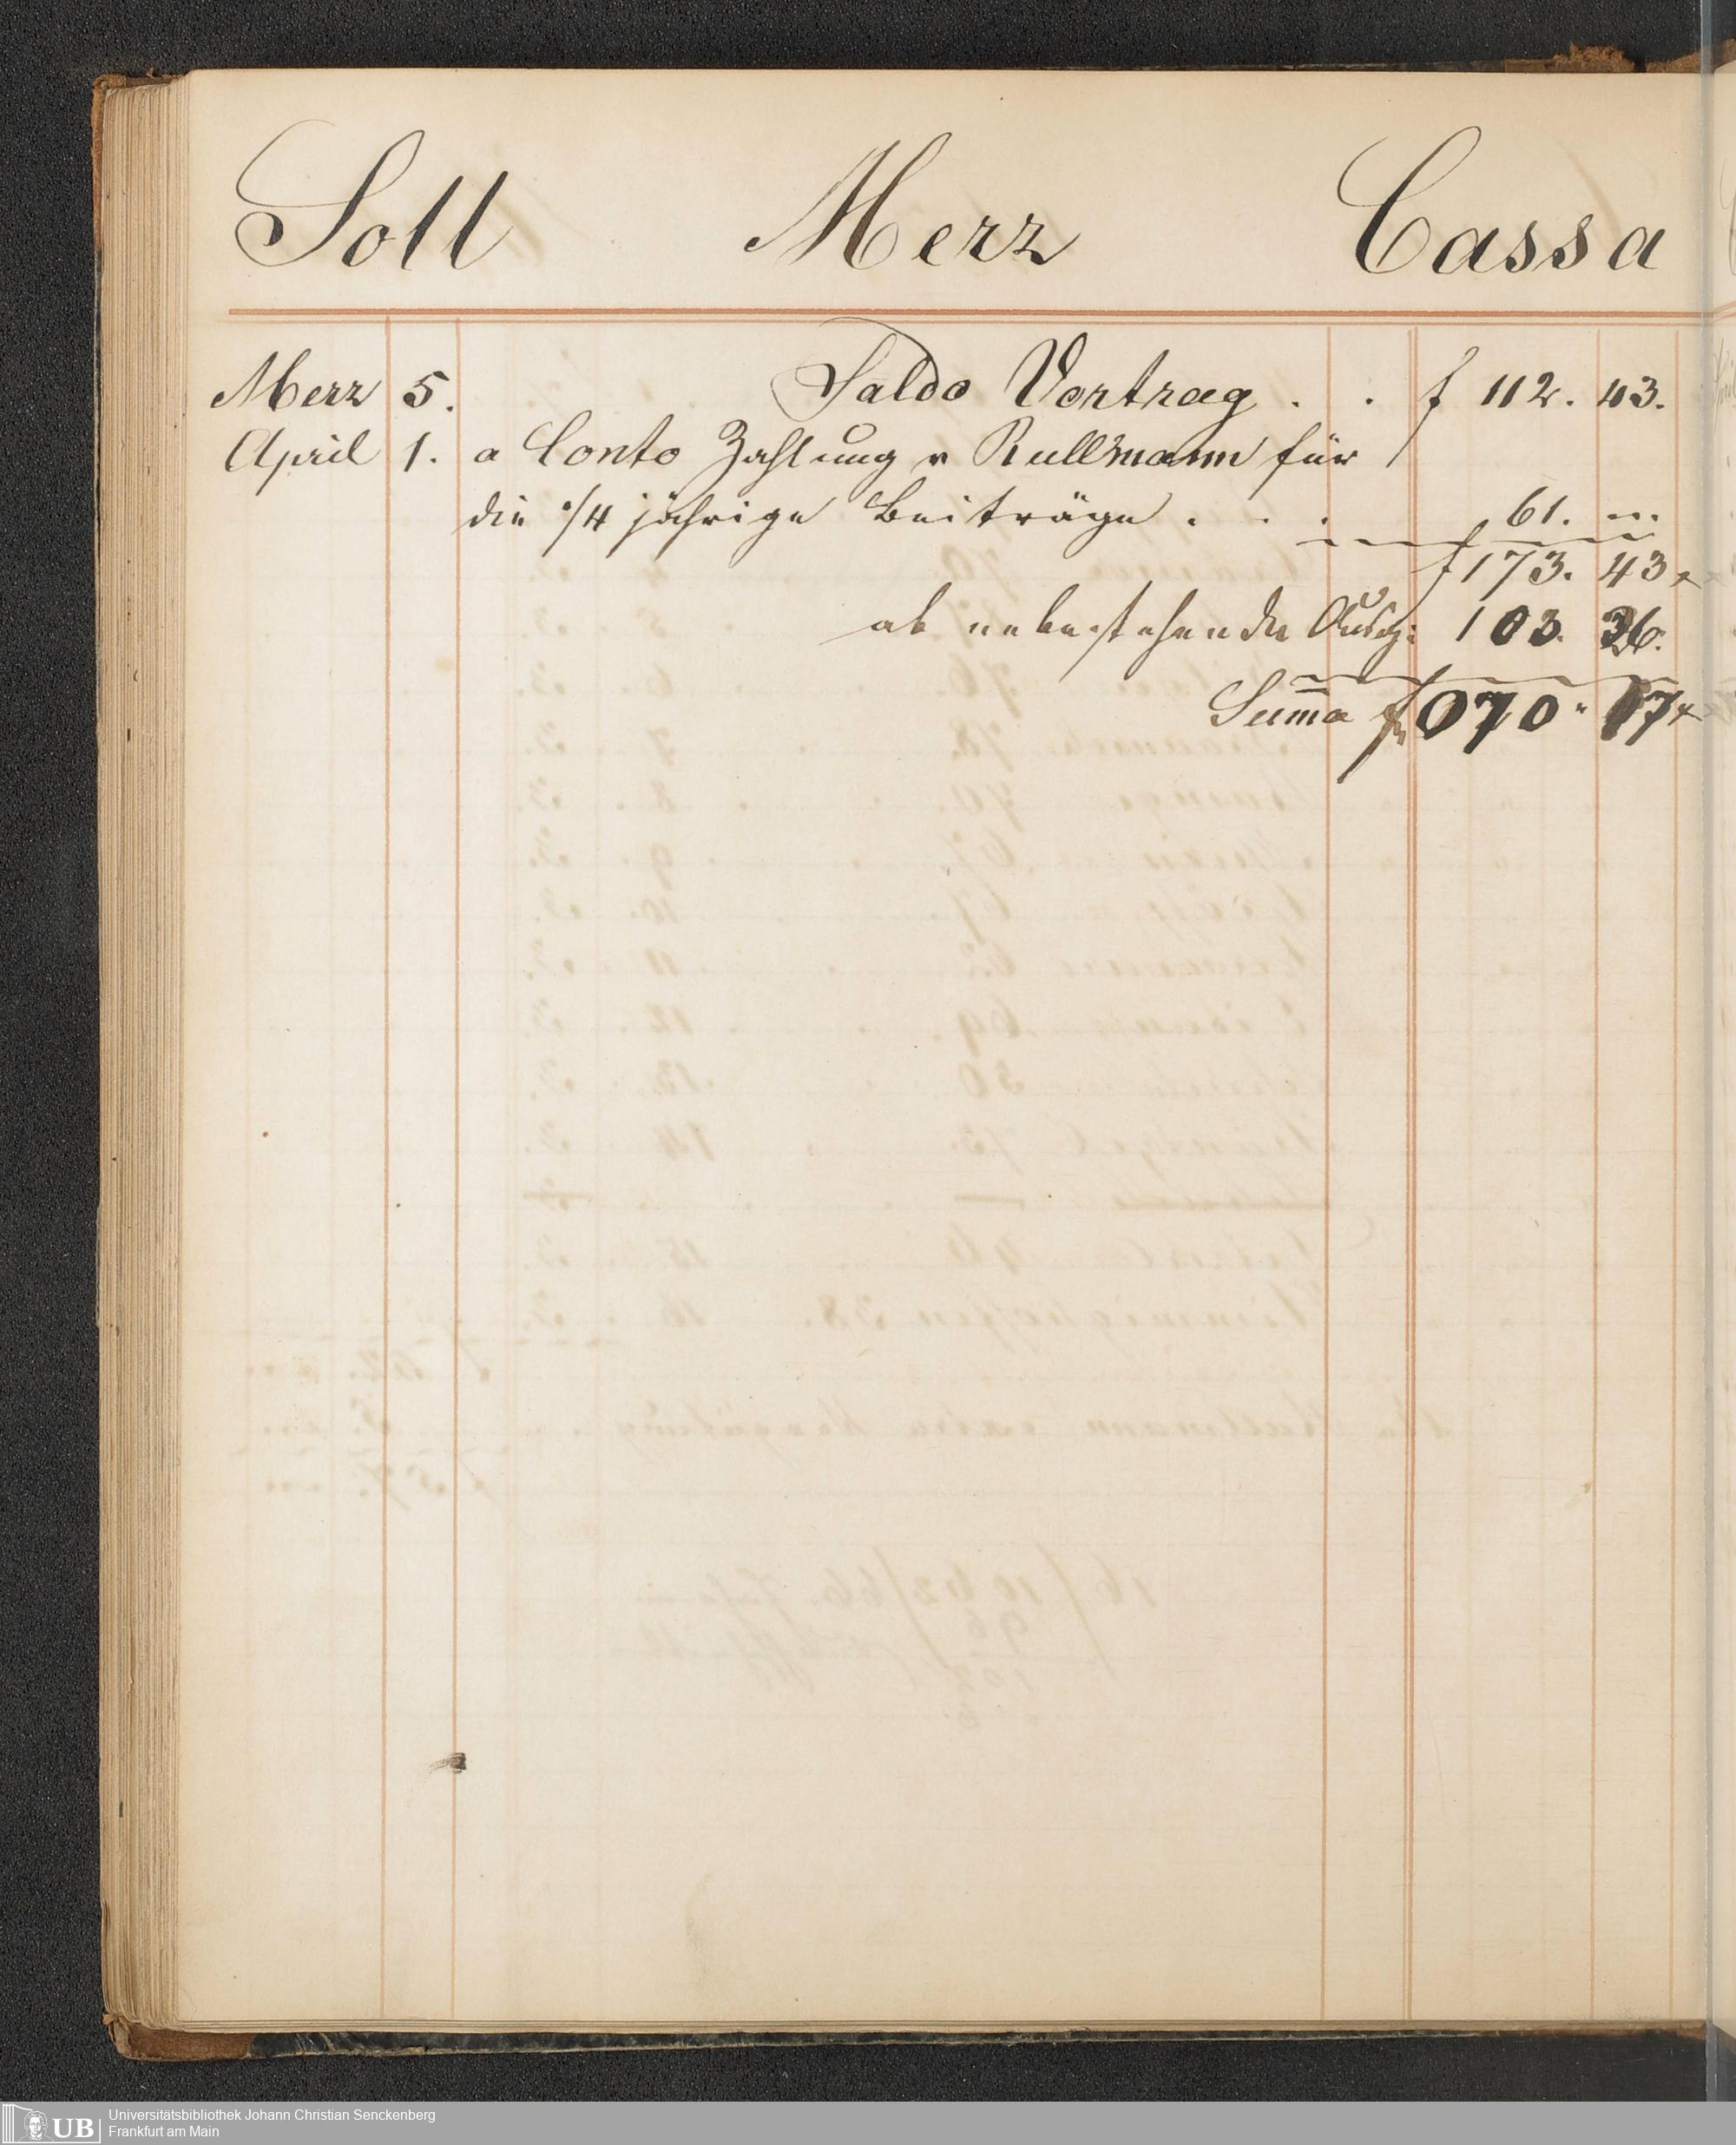 Soll Merz Cassa
Merz 5. Saldo Vortrag . . f 112. 43.
April 1. a Conto Zahlung v Rullmann für
die 1/4 jährige Beiträge . . . 61. ...
f 173. 43 x
ab nebenstehende Ausg: 103. 36.
Suma̅ f 070. 07 x
UB
Universitätsbibliothek Johann Christian Senckenberg
Frankfurt am Main